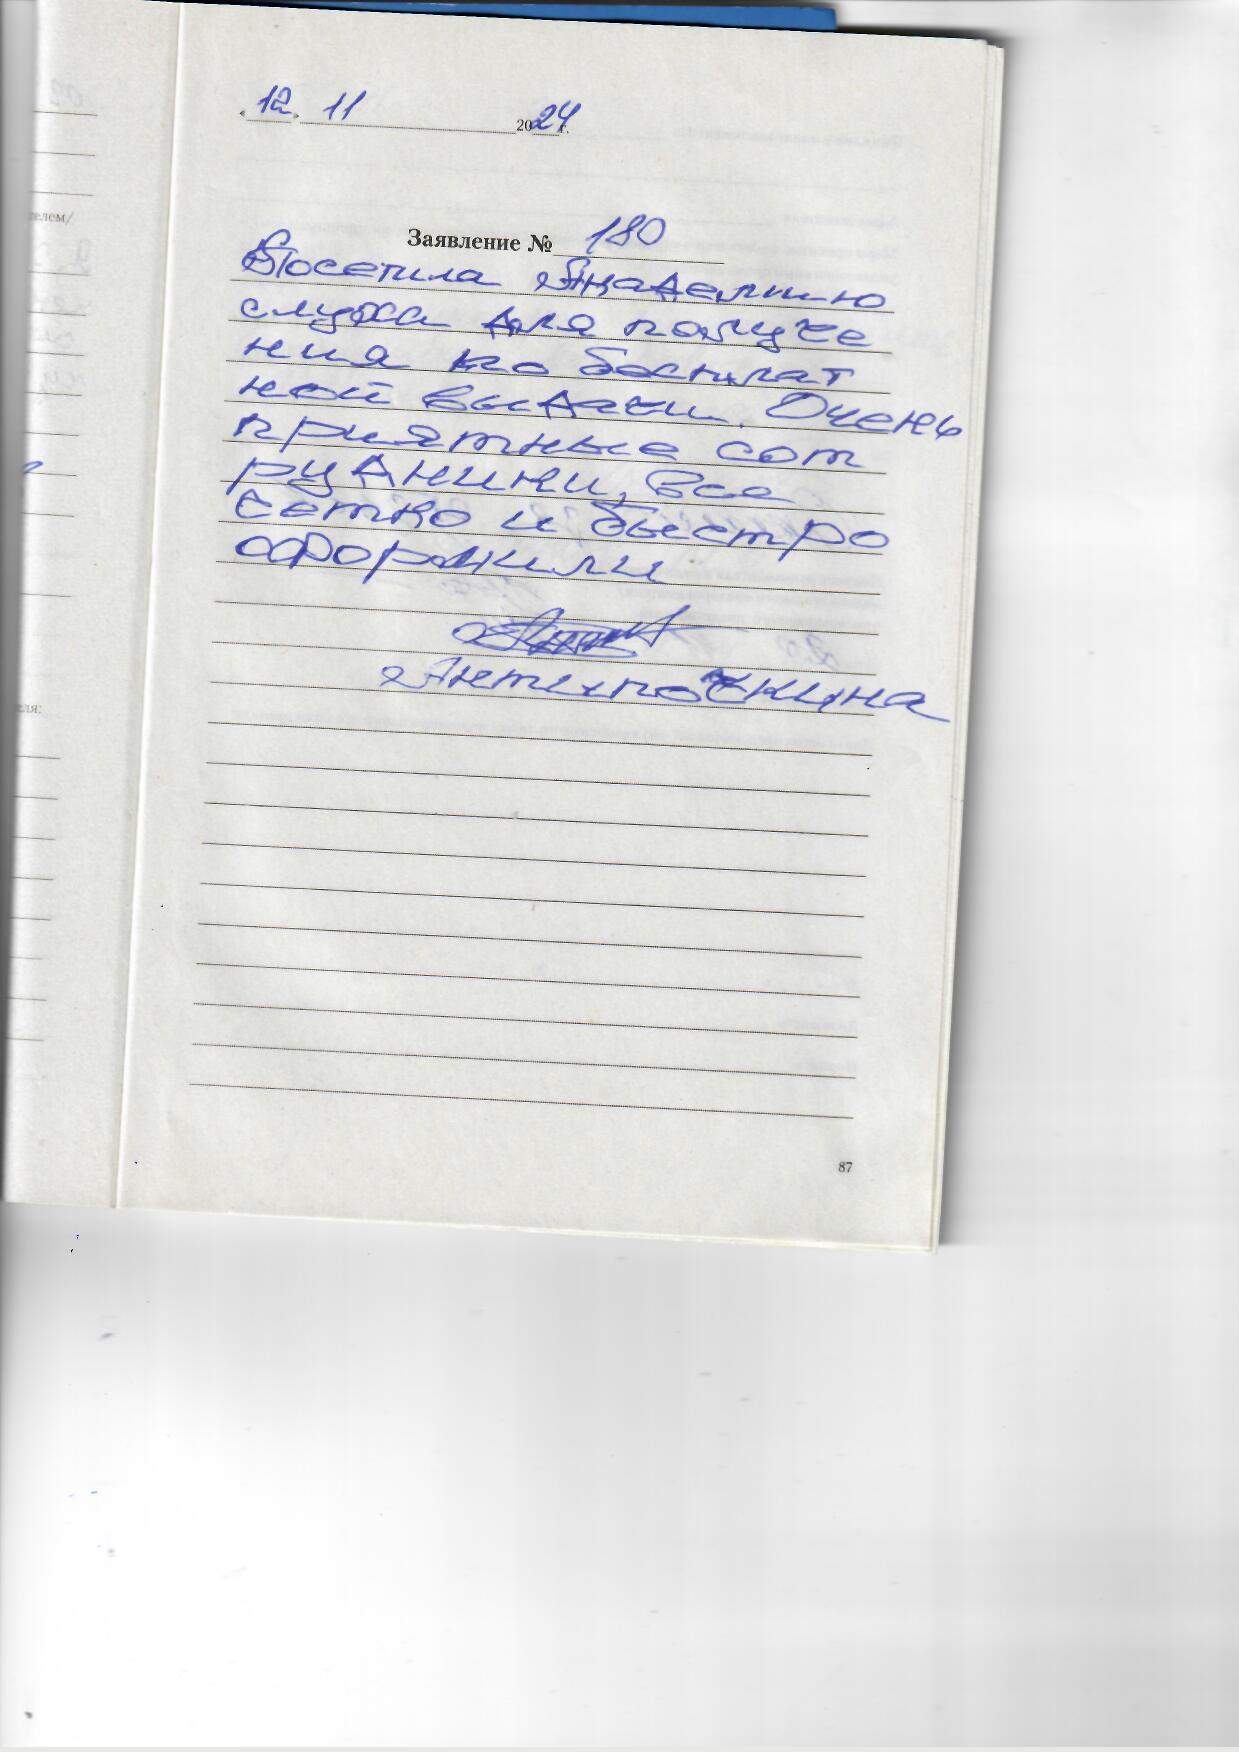 « 12 » 11 2024 г.
Заявление № 180
Посетила Академию
слуха для получе
ния по бесплат
ной выдачи. Очень
приятные сот
рудники, все
четко и быстро
оформили
Антипочкина
телем/
еля:
87